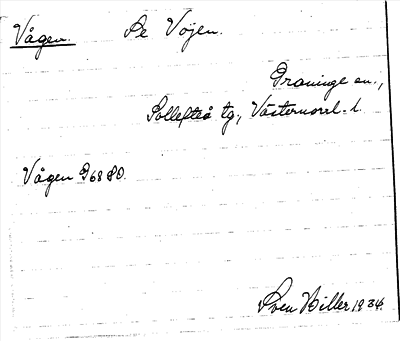 Vågen. Se Vöjen.
Graninge sn.,
Sollefteå tg., Västernorrl. l.
Vågen G6880.
Sven Biller 1934.